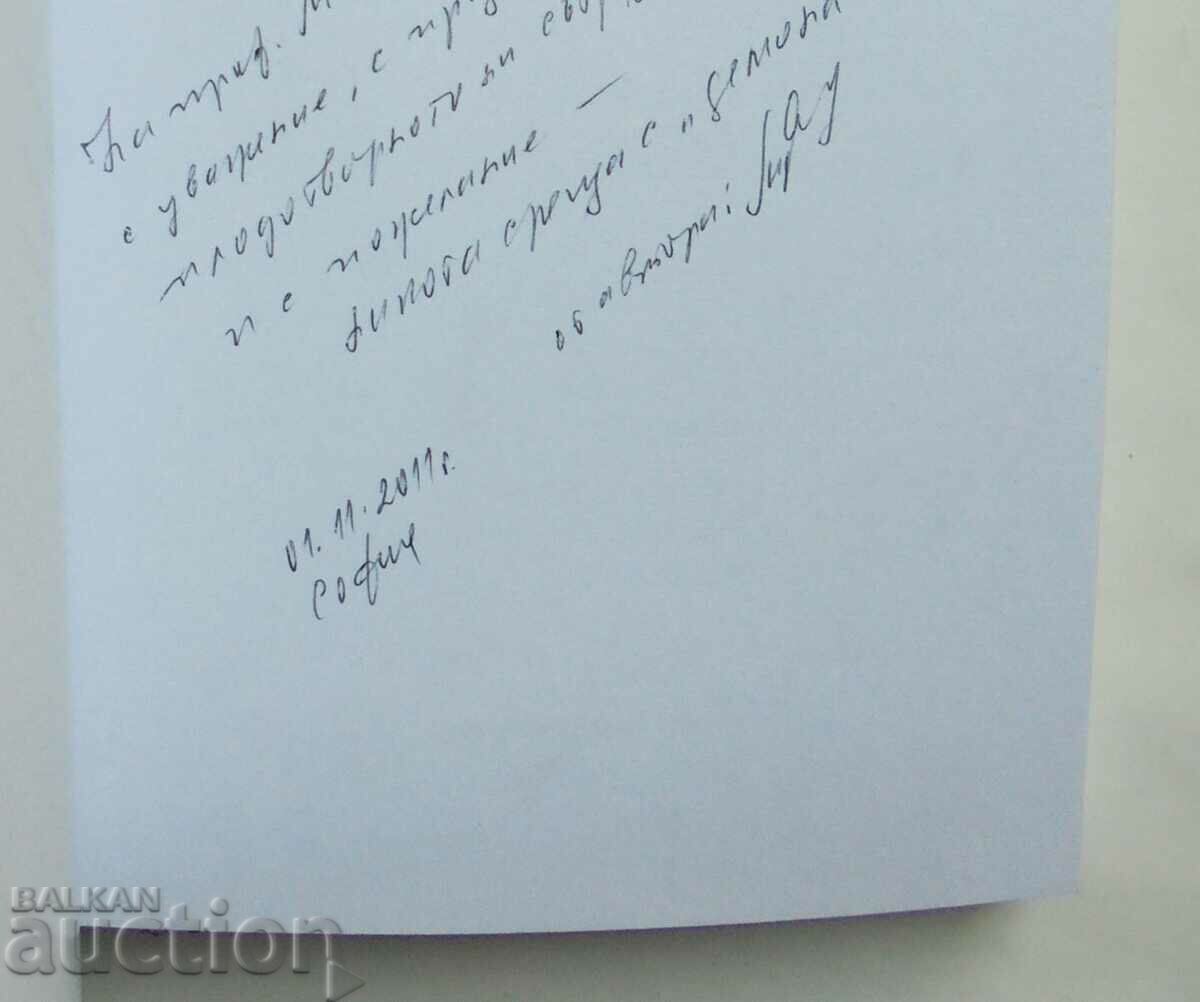 На проф. М
с уважение, с приз
плодотворното ни
и с пожелание —
среща с „демона
от автора:
01.11.2011 г.
София
BALKAN
auction